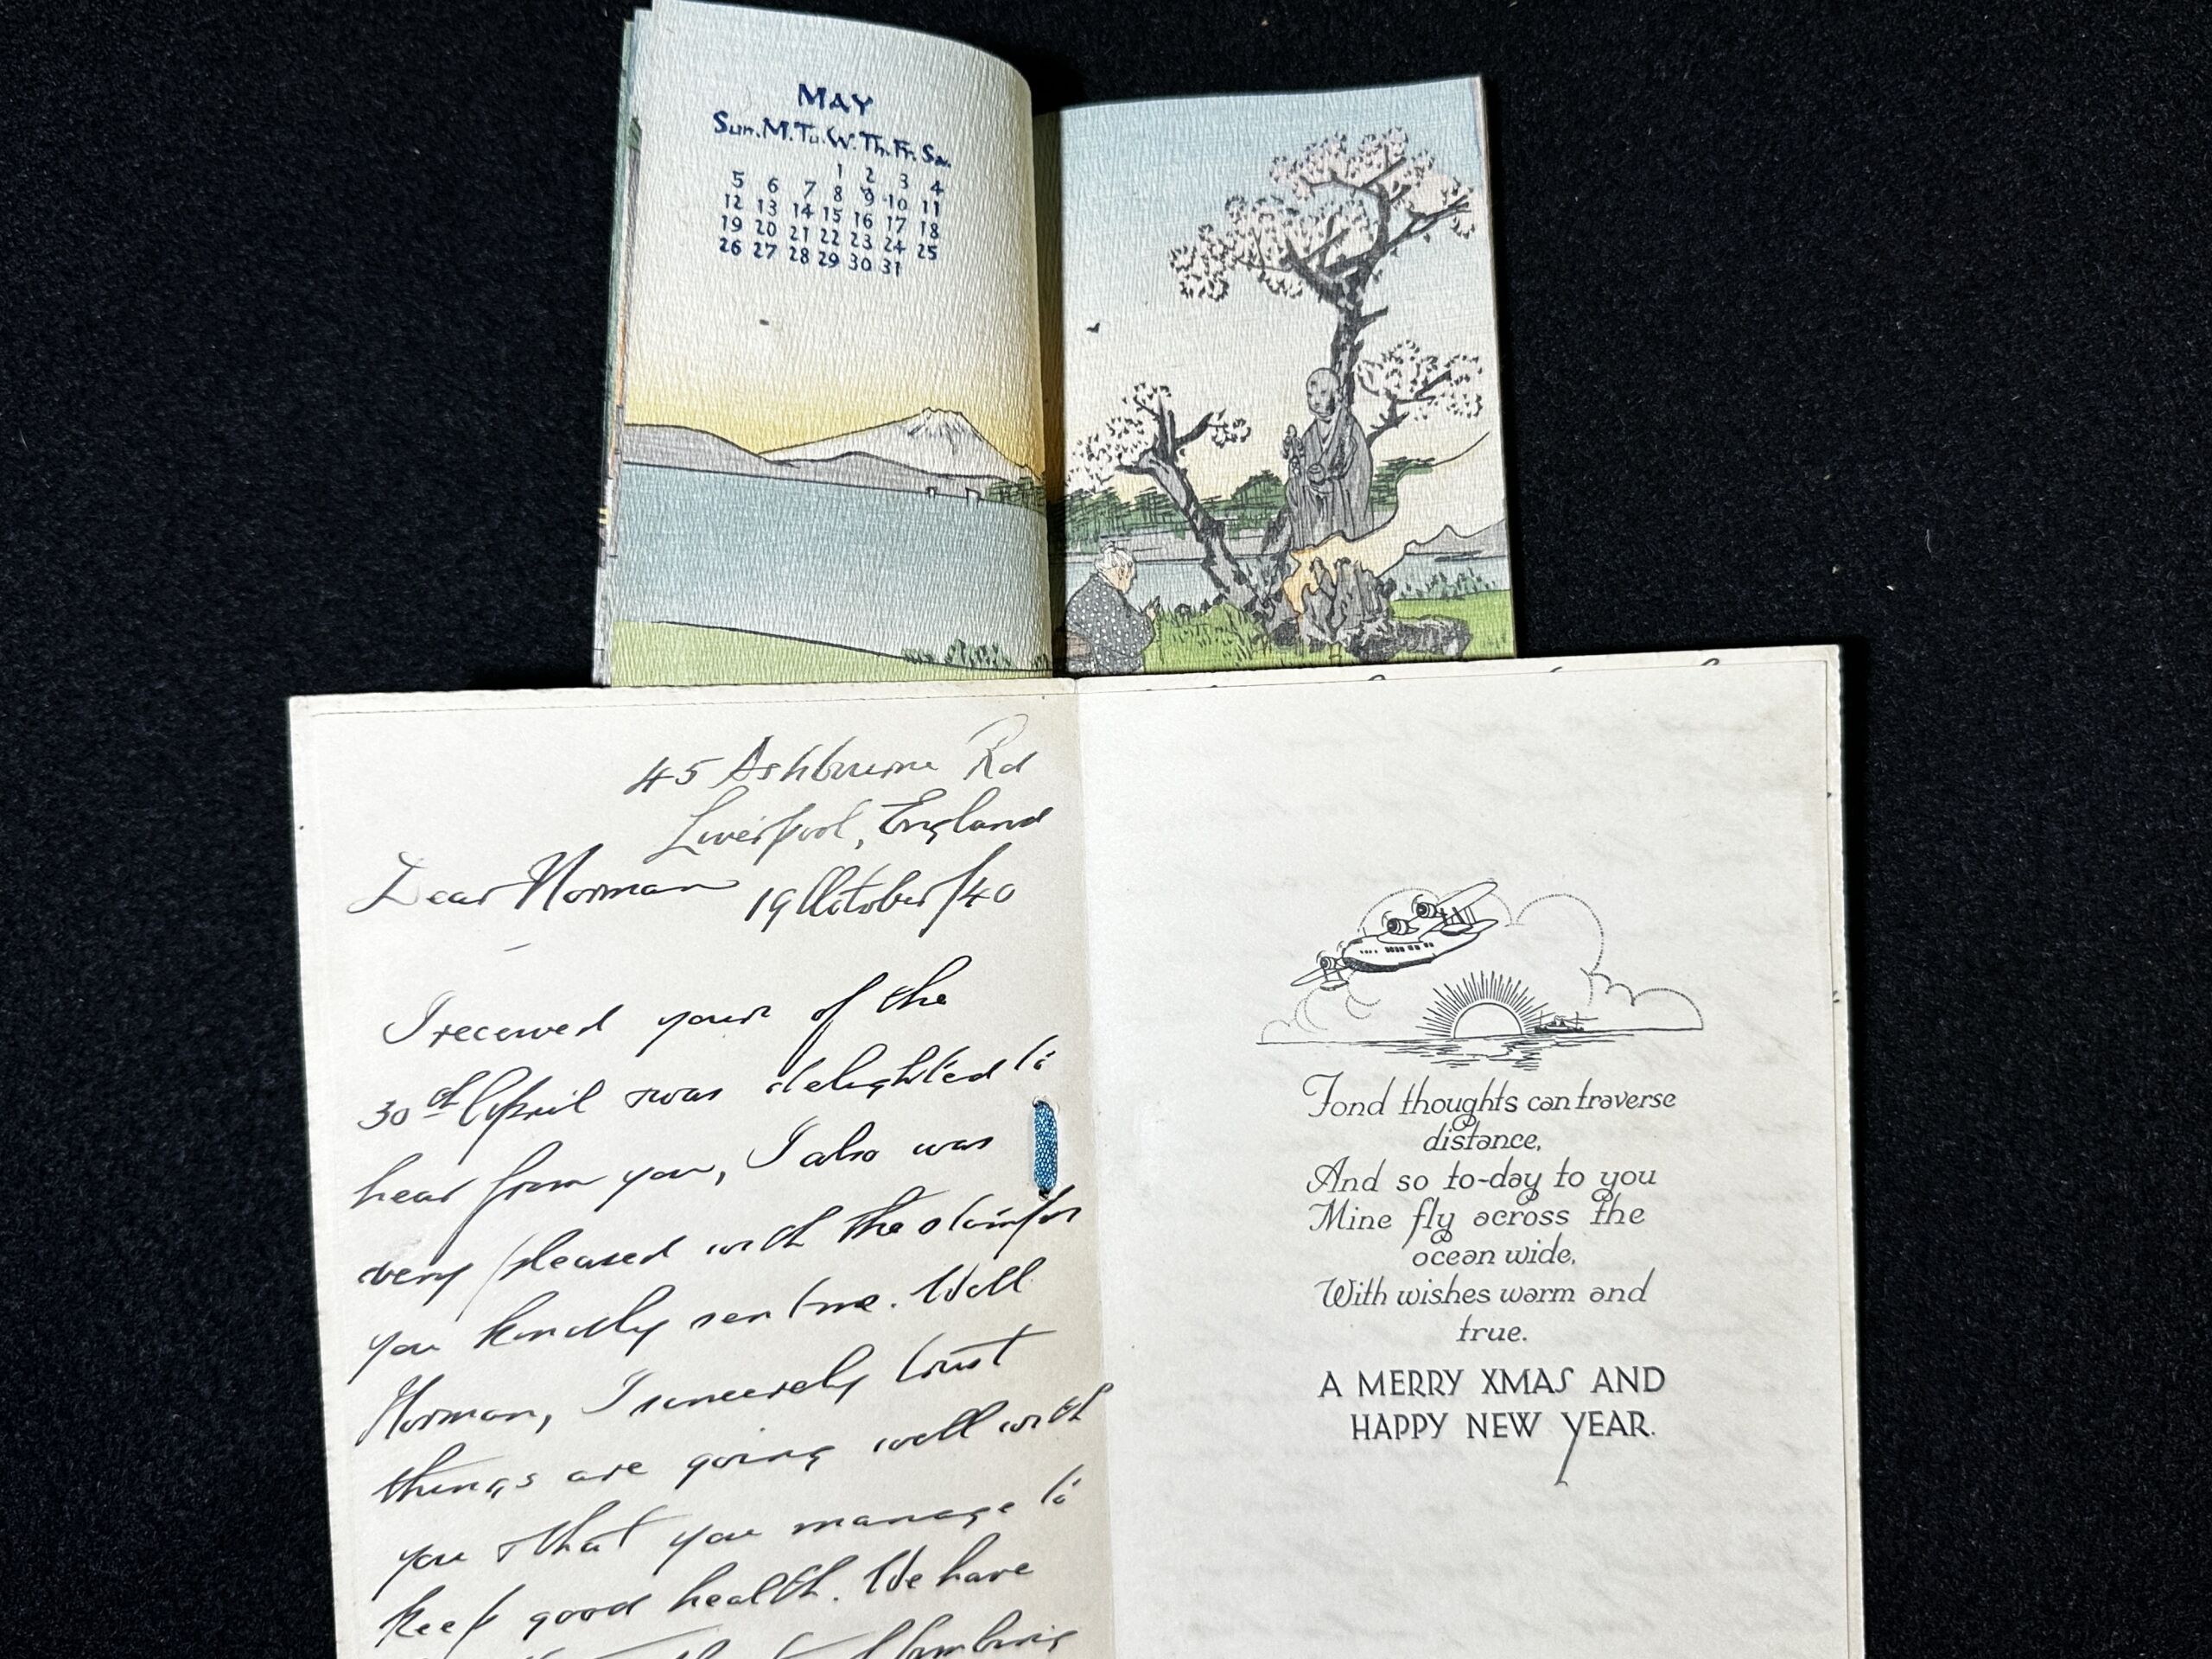 MAY
Sun. M. Tu. W. Th. Fr. Sa.
1 2 3 4
5 6 7 8 9 10 11
12 13 14 15 16 17 18
19 20 21 22 23 24 25
26 27 28 29 30 31
45 Ashbourne Rd
Liverpool, England
Dear Norman 19 October/40
I received yours of the
30th April & was delighted to
hear from you, I also was
very pleased with the stamps
you kindly sent me. Well
Norman, I sincerely trust
things are going well with
you & that you manage to
keep good health. We have
bombing
Fond thoughts can traverse
distance,
And so to-day to you
Mine fly across the
ocean wide,
With wishes warm and
true.
A MERRY XMAS AND
HAPPY NEW YEAR.